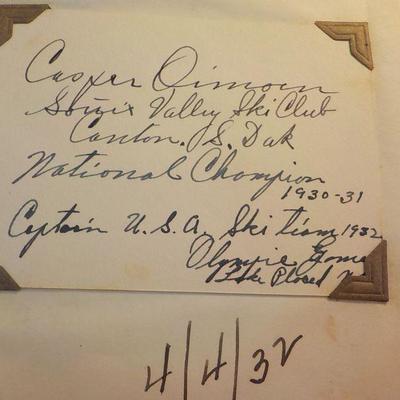 Casper Oimoen
Souix Valley Ski Club
Canton. S. Dak
National Champion
1930-31
Captain U.S.A. Ski team 1932
Olympic Game
Lake Placed
4/4/32